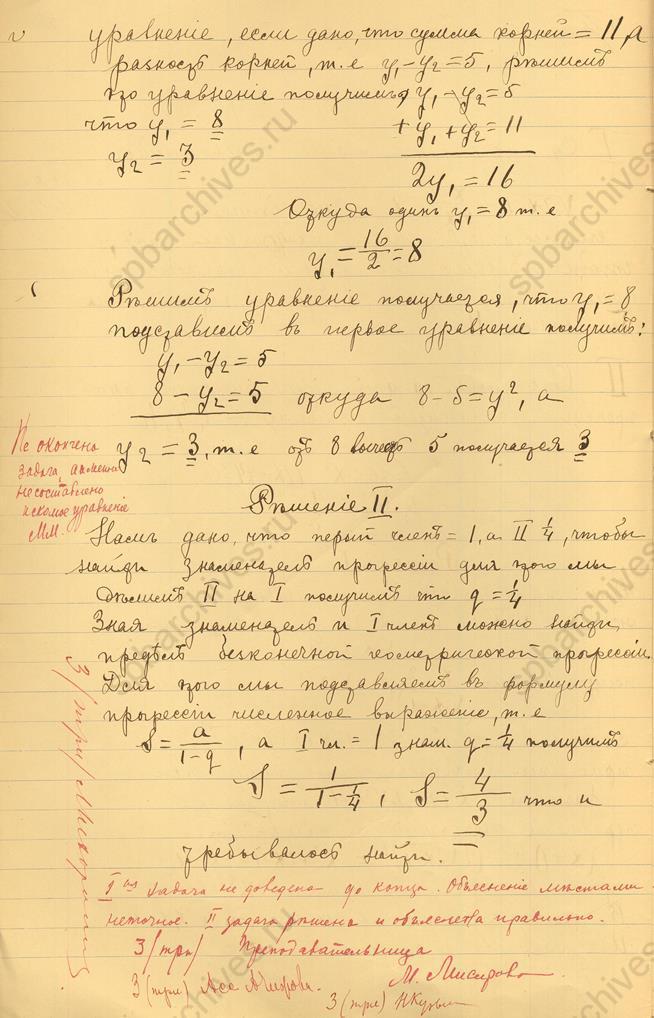 уравненіе, если дано, что сумма корней = 11, а
разность корней, т.е y₁-y₂=5, рѣшимъ
это уравненіе получимъ, y₁ - y₂ = 5
что y₁ = 8
+ y₁ + y₂ = 11
y₂ = 3
2y₁ = 16
Откуда одинъ y₁ = 8 т.е
y₁ = 16/2 = 8
Рѣшимъ уравненіе получается, что y₁ = 8,
подставимъ въ первое уравненіе получимъ:
y₁ - y₂ = 5
8 - y₂ = 5 откуда 8 - 5 = y², а
y₂ = 3, т.е отъ 8 вычесть 5 получается 3
Не окончена
задача, а именно
не составлено
искомое уравненіе
ММ.
Рѣшеніе II.
Намъ дано, что перый членъ = 1, а II 1/4, чтобы
найти знаменатель прогрессіи для этого мы
дѣлимъ II на I получимъ что q = 1/4
Зная знаменатель и I членъ можно найти
предѣлъ безконечной геометрической прогрессіи.
Для этого мы подставляемъ въ формулу
прогрессіи численное выраженіе, т.е
S = a/(1-q), а I чл. = 1 знам. q = 1/4 получимъ
S = 1/(1-1/4), S = 4/3 что и
требывалось найти.
3 /три/
I ая задача не доведена до конца. Объясненіе мѣстами
неточное. II задача рѣшена и объяснена правильно.
3 /три/ Преподавательница
3 (три)
3 (три)
spbarchives.ru